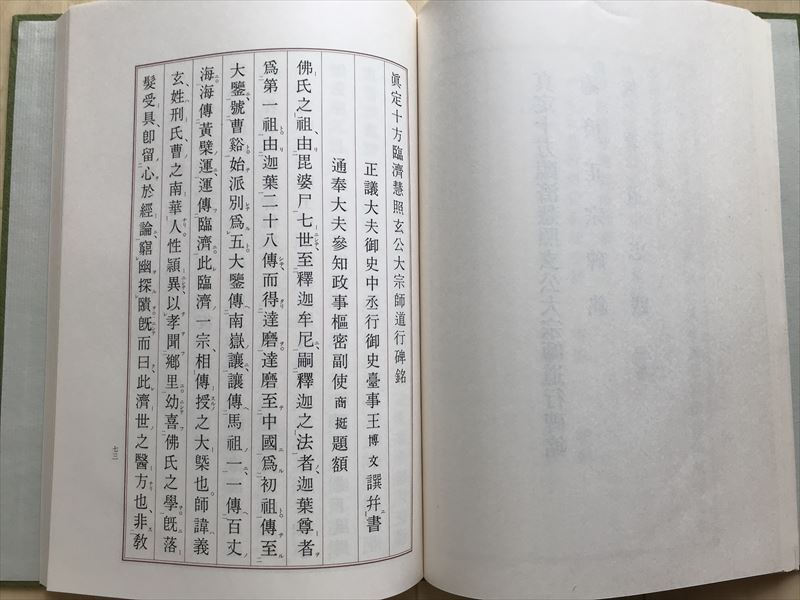 眞定十方臨濟慧照玄公大宗師道行碑銘
正議大夫御史中丞行御史臺事王博文譔并書
通奉大夫參知政事樞密副使商挺題額
佛氏之祖由毘婆尸七世至釋迦牟尼嗣釋迦之法者迦葉尊者
爲第一祖由迦葉二十八傳而得達磨達磨至中國爲初祖傳至
大鑒號曹谿始派別爲五大鑒傳南嶽讓讓傳馬祖一一傳百丈
海海傳黃檗運運傳臨濟此臨濟一宗相傳授之大槩也師諱義
玄姓刑氏曹之南華人性頴異以孝聞鄉里幼喜佛氏之學旣落
髮受具卽留心於經論窮幽探賾旣而曰此濟世之醫方也非教
七三